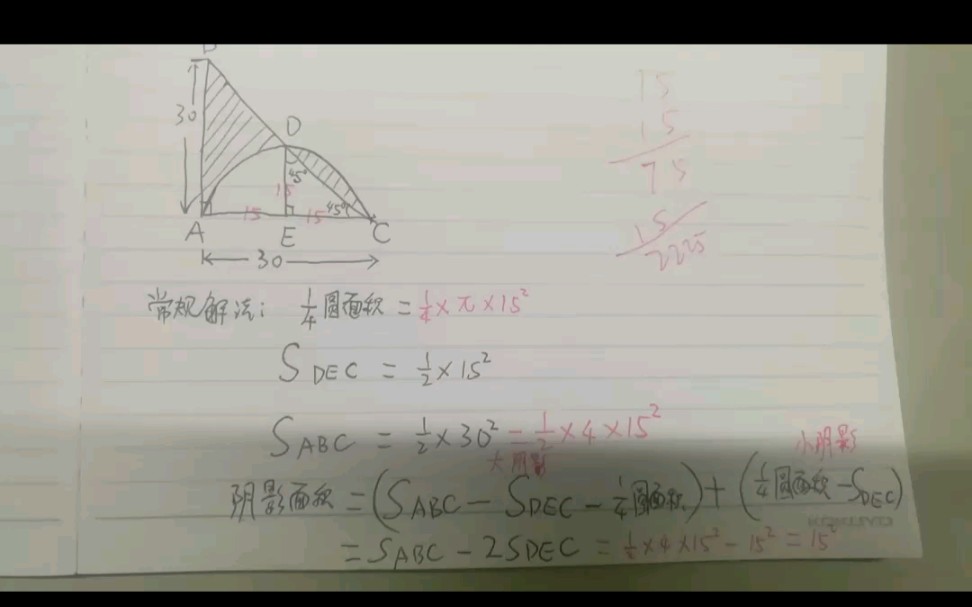 30
D
45°
15
15
15
45°
A
E
C
30
15
15
75
15
2225
常规解法: 1/4圆面积 = 1/4 × π × 15²
S DEC = 1/2 × 15²
S ABC = 1/2 × 30² = 1/2 × 4 × 15²
大阴影
小阴影
阴影面积 = (S ABC - S DEC - 1/4圆面积) + (1/4圆面积 - S DEC)
KOKUYO
= S ABC - 2S DEC = 1/2 × 4 × 15² - 15² = 15²